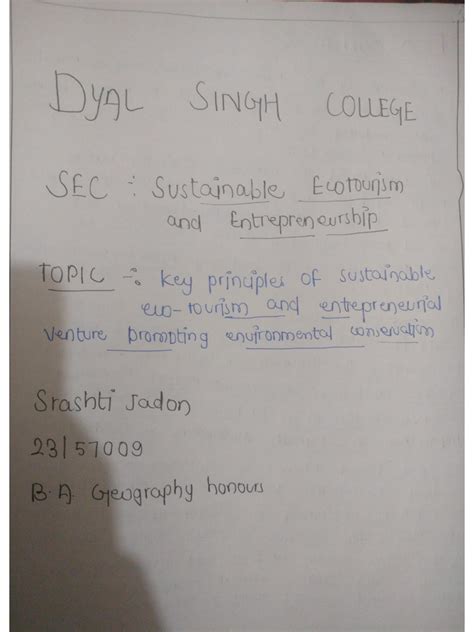 DYAL SINGH COLLEGE
SEC :- Sustainable Ecotourism
and Entrepreneurship
TOPIC -: Key principles of sustainable
eco-tourism and entepreneurial
venture prompting environmental conservation
Srashti Jadon
23/57009
B.A. Geography honours